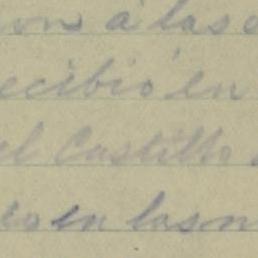 ron á las
ecibió en
el Castillo
lo en las